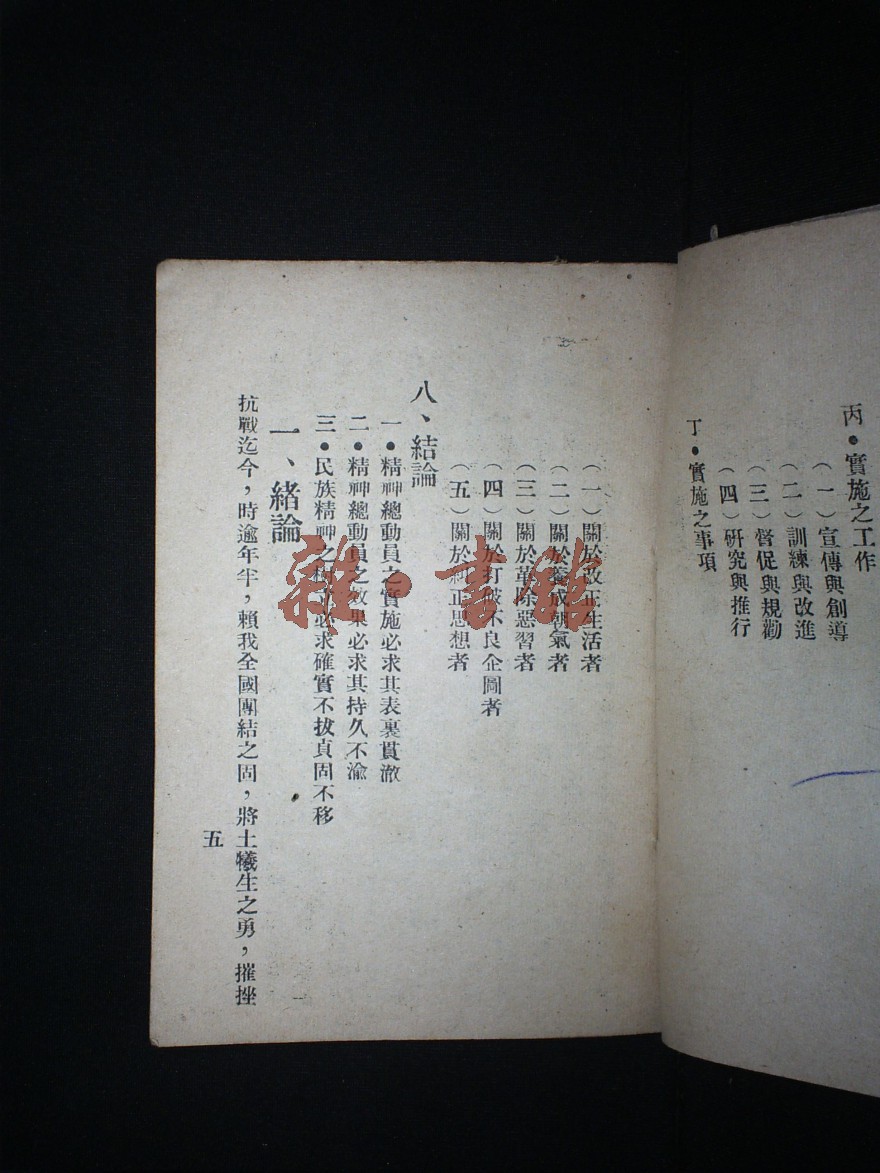 丙•實施之工作
(一)宣傳與創導
(二)訓練與改進
(三)督促與規勸
(四)研究與推行
丁•實施之事項
(一)關於改正生活者
(二)關於養成朝氣者
(三)關於革除惡習者
(四)關於打破不良企圖者
(五)關於糾正思想者
八、結論
一•精神總動員之實施必求其表裏貫澈
二•精神總動員之效果必求其持久不渝
三•民族精神之 必求確實不拔貞固不移
一、緒論
抗戰迄今，時逾年半，賴我全國團結之固，將士犧生之勇，摧挫
五
雜•書館